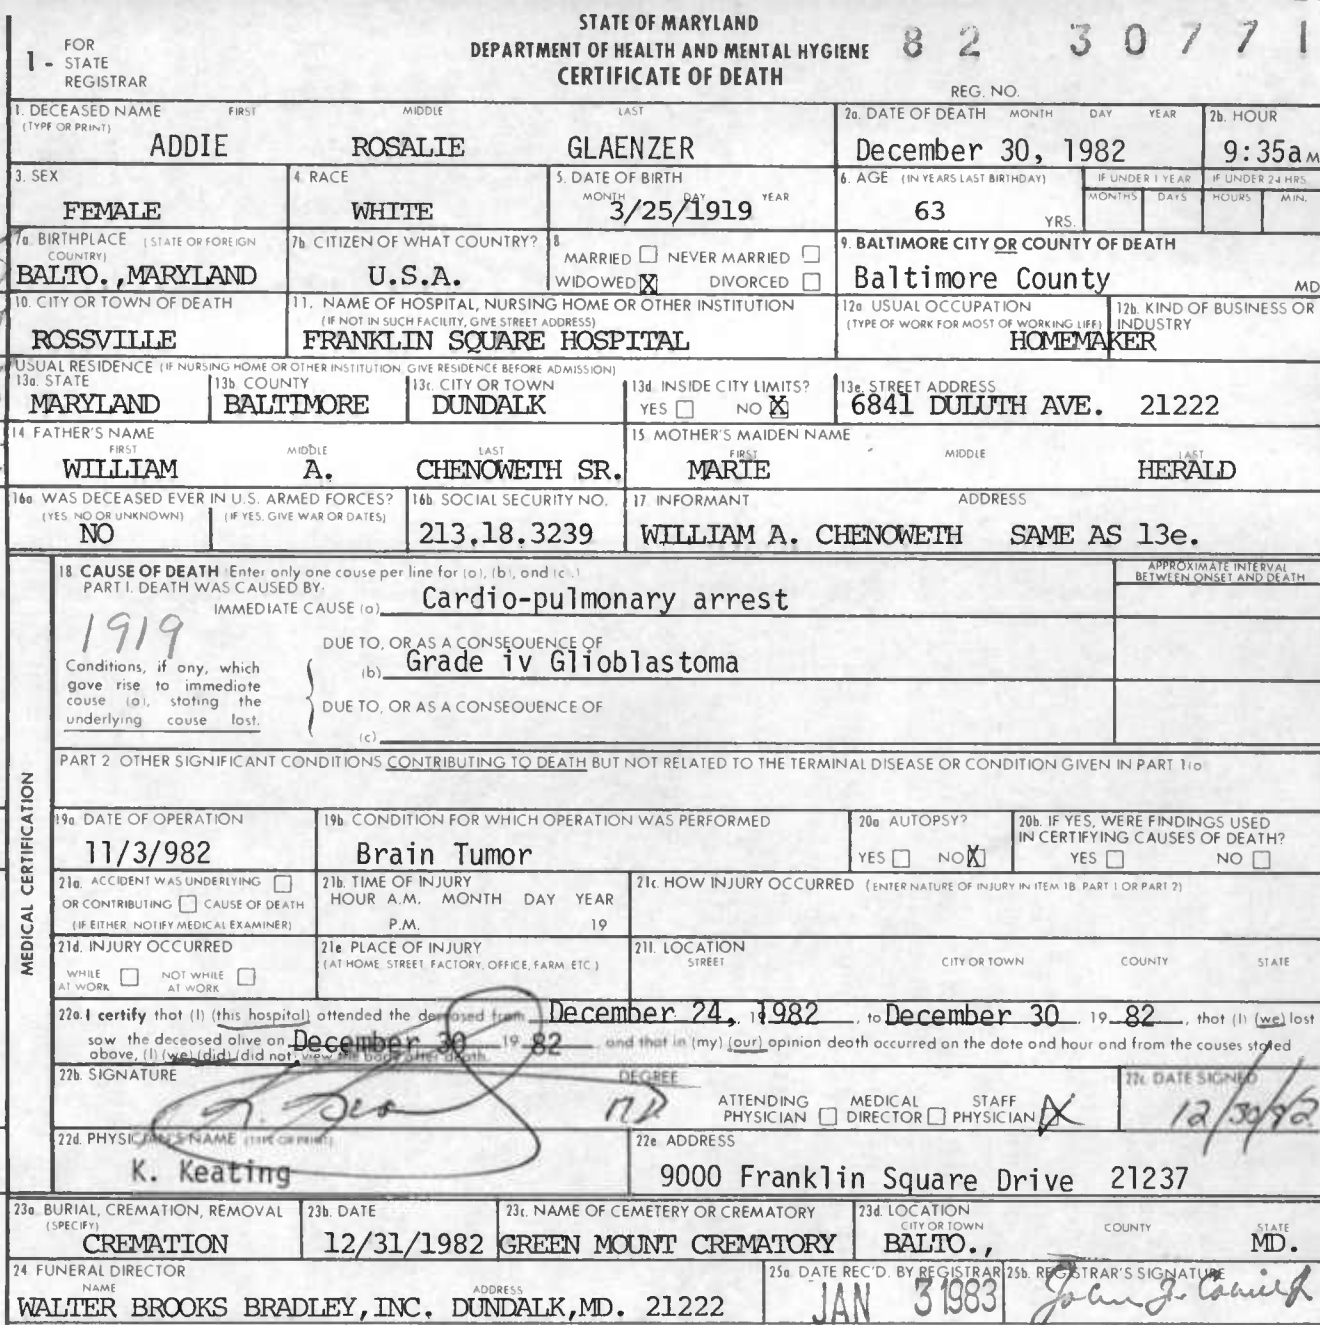 STATE OF MARYLAND
DEPARTMENT OF HEALTH AND MENTAL HYGIENE
CERTIFICATE OF DEATH
82 30771
1 - FOR STATE REGISTRAR
REG. NO.
1. DECEASED NAME (TYPE OR PRINT) FIRST MIDDLE LAST
ADDIE ROSALIE GLAENZER
2a. DATE OF DEATH MONTH DAY YEAR
December 30, 1982
2b. HOUR
9:35a M
3. SEX
FEMALE
4. RACE
WHITE
5. DATE OF BIRTH
MONTH DAY YEAR
3/25/1919
6. AGE (IN YEARS LAST BIRTHDAY)
63 YRS.
IF UNDER 1 YEAR
MONTHS DAYS
IF UNDER 24 HRS.
HOURS MIN.
7a. BIRTHPLACE (STATE OR FOREIGN COUNTRY)
BALTO.,MARYLAND
7b. CITIZEN OF WHAT COUNTRY?
U.S.A.
8
MARRIED NEVER MARRIED
WIDOWED X DIVORCED
9. BALTIMORE CITY OR COUNTY OF DEATH
Baltimore County MD
10. CITY OR TOWN OF DEATH
ROSSVILLE
11. NAME OF HOSPITAL, NURSING HOME OR OTHER INSTITUTION
(IF NOT IN SUCH FACILITY, GIVE STREET ADDRESS)
FRANKLIN SQUARE HOSPITAL
12a USUAL OCCUPATION
(TYPE OF WORK FOR MOST OF WORKING LIFE)
12b. KIND OF BUSINESS OR INDUSTRY
HOMEMAKER
USUAL RESIDENCE (IF NURSING HOME OR OTHER INSTITUTION GIVE RESIDENCE BEFORE ADMISSION)
13a. STATE
MARYLAND
13b COUNTY
BALTIMORE
13c. CITY OR TOWN
DUNDALK
13d INSIDE CITY LIMITS?
YES NO X
13e. STREET ADDRESS
6841 DULUTH AVE. 21222
14 FATHER'S NAME
FIRST MIDDLE LAST
WILLIAM A. CHENOWETH SR.
15 MOTHER'S MAIDEN NAME
FIRST MIDDLE LAST
MARIE HERALD
16a WAS DECEASED EVER IN U.S. ARMED FORCES?
(YES, NO OR UNKNOWN) (IF YES, GIVE WAR OR DATES)
NO
16b SOCIAL SECURITY NO.
213.18.3239
17. INFORMANT ADDRESS
WILLIAM A. CHENOWETH SAME AS 13e.
MEDICAL CERTIFICATION
18 CAUSE OF DEATH (Enter only one cause per line for (a), (b), and (c).)
APPROXIMATE INTERVAL BETWEEN ONSET AND DEATH
PART I. DEATH WAS CAUSED BY:
IMMEDIATE CAUSE (a) Cardio-pulmonary arrest
1919
Conditions, if any, which gave rise to immediate cause (a), stating the underlying cause last.
DUE TO, OR AS A CONSEQUENCE OF
(b) Grade iv Glioblastoma
DUE TO, OR AS A CONSEQUENCE OF
(c)
PART 2 OTHER SIGNIFICANT CONDITIONS CONTRIBUTING TO DEATH BUT NOT RELATED TO THE TERMINAL DISEASE OR CONDITION GIVEN IN PART 1(a)
19a DATE OF OPERATION
11/3/982
19b CONDITION FOR WHICH OPERATION WAS PERFORMED
Brain Tumor
20a AUTOPSY?
YES NO X
20b. IF YES, WERE FINDINGS USED IN CERTIFYING CAUSES OF DEATH?
YES NO
21a. ACCIDENT WAS UNDERLYING
OR CONTRIBUTING CAUSE OF DEATH
(IF EITHER NOTIFY MEDICAL EXAMINER)
21b. TIME OF INJURY
HOUR A.M. MONTH DAY YEAR
P.M. 19
21c. HOW INJURY OCCURRED (ENTER NATURE OF INJURY IN ITEM 18 PART 1 OR PART 2)
21d. INJURY OCCURRED
WHILE AT WORK NOT WHILE AT WORK
21e PLACE OF INJURY
(AT HOME STREET, FACTORY, OFFICE, FARM ETC)
21f. LOCATION
STREET CITY OR TOWN COUNTY STATE
22a. I certify that (I) (this hospital) attended the deceased from December 24, 1982, to December 30 1982, that (I) (we) last
saw the deceased alive on December 30 1982 and that in (my) (our) opinion death occurred on the date and hour and from the causes stated
above, (I) (we) (did) (did not) view the body after death.
22b. SIGNATURE DEGREE
MD
ATTENDING PHYSICIAN MEDICAL DIRECTOR STAFF PHYSICIAN X
22c. DATE SIGNED
12/30/82
22d. PHYSICIAN'S NAME (TYPE OR PRINT)
K. Keating
22e ADDRESS
9000 Franklin Square Drive 21237
23a BURIAL, CREMATION, REMOVAL (SPECIFY)
CREMATION
23b. DATE
12/31/1982
23c. NAME OF CEMETERY OR CREMATORY
GREEN MOUNT CREMATORY
23d. LOCATION
CITY OR TOWN COUNTY STATE
BALTO., MD.
24 FUNERAL DIRECTOR
NAME ADDRESS
WALTER BROOKS BRADLEY,INC. DUNDALK,MD. 21222
25a. DATE REC'D. BY REGISTRAR
JAN 3 1983
25b. REGISTRAR'S SIGNATURE
John J.